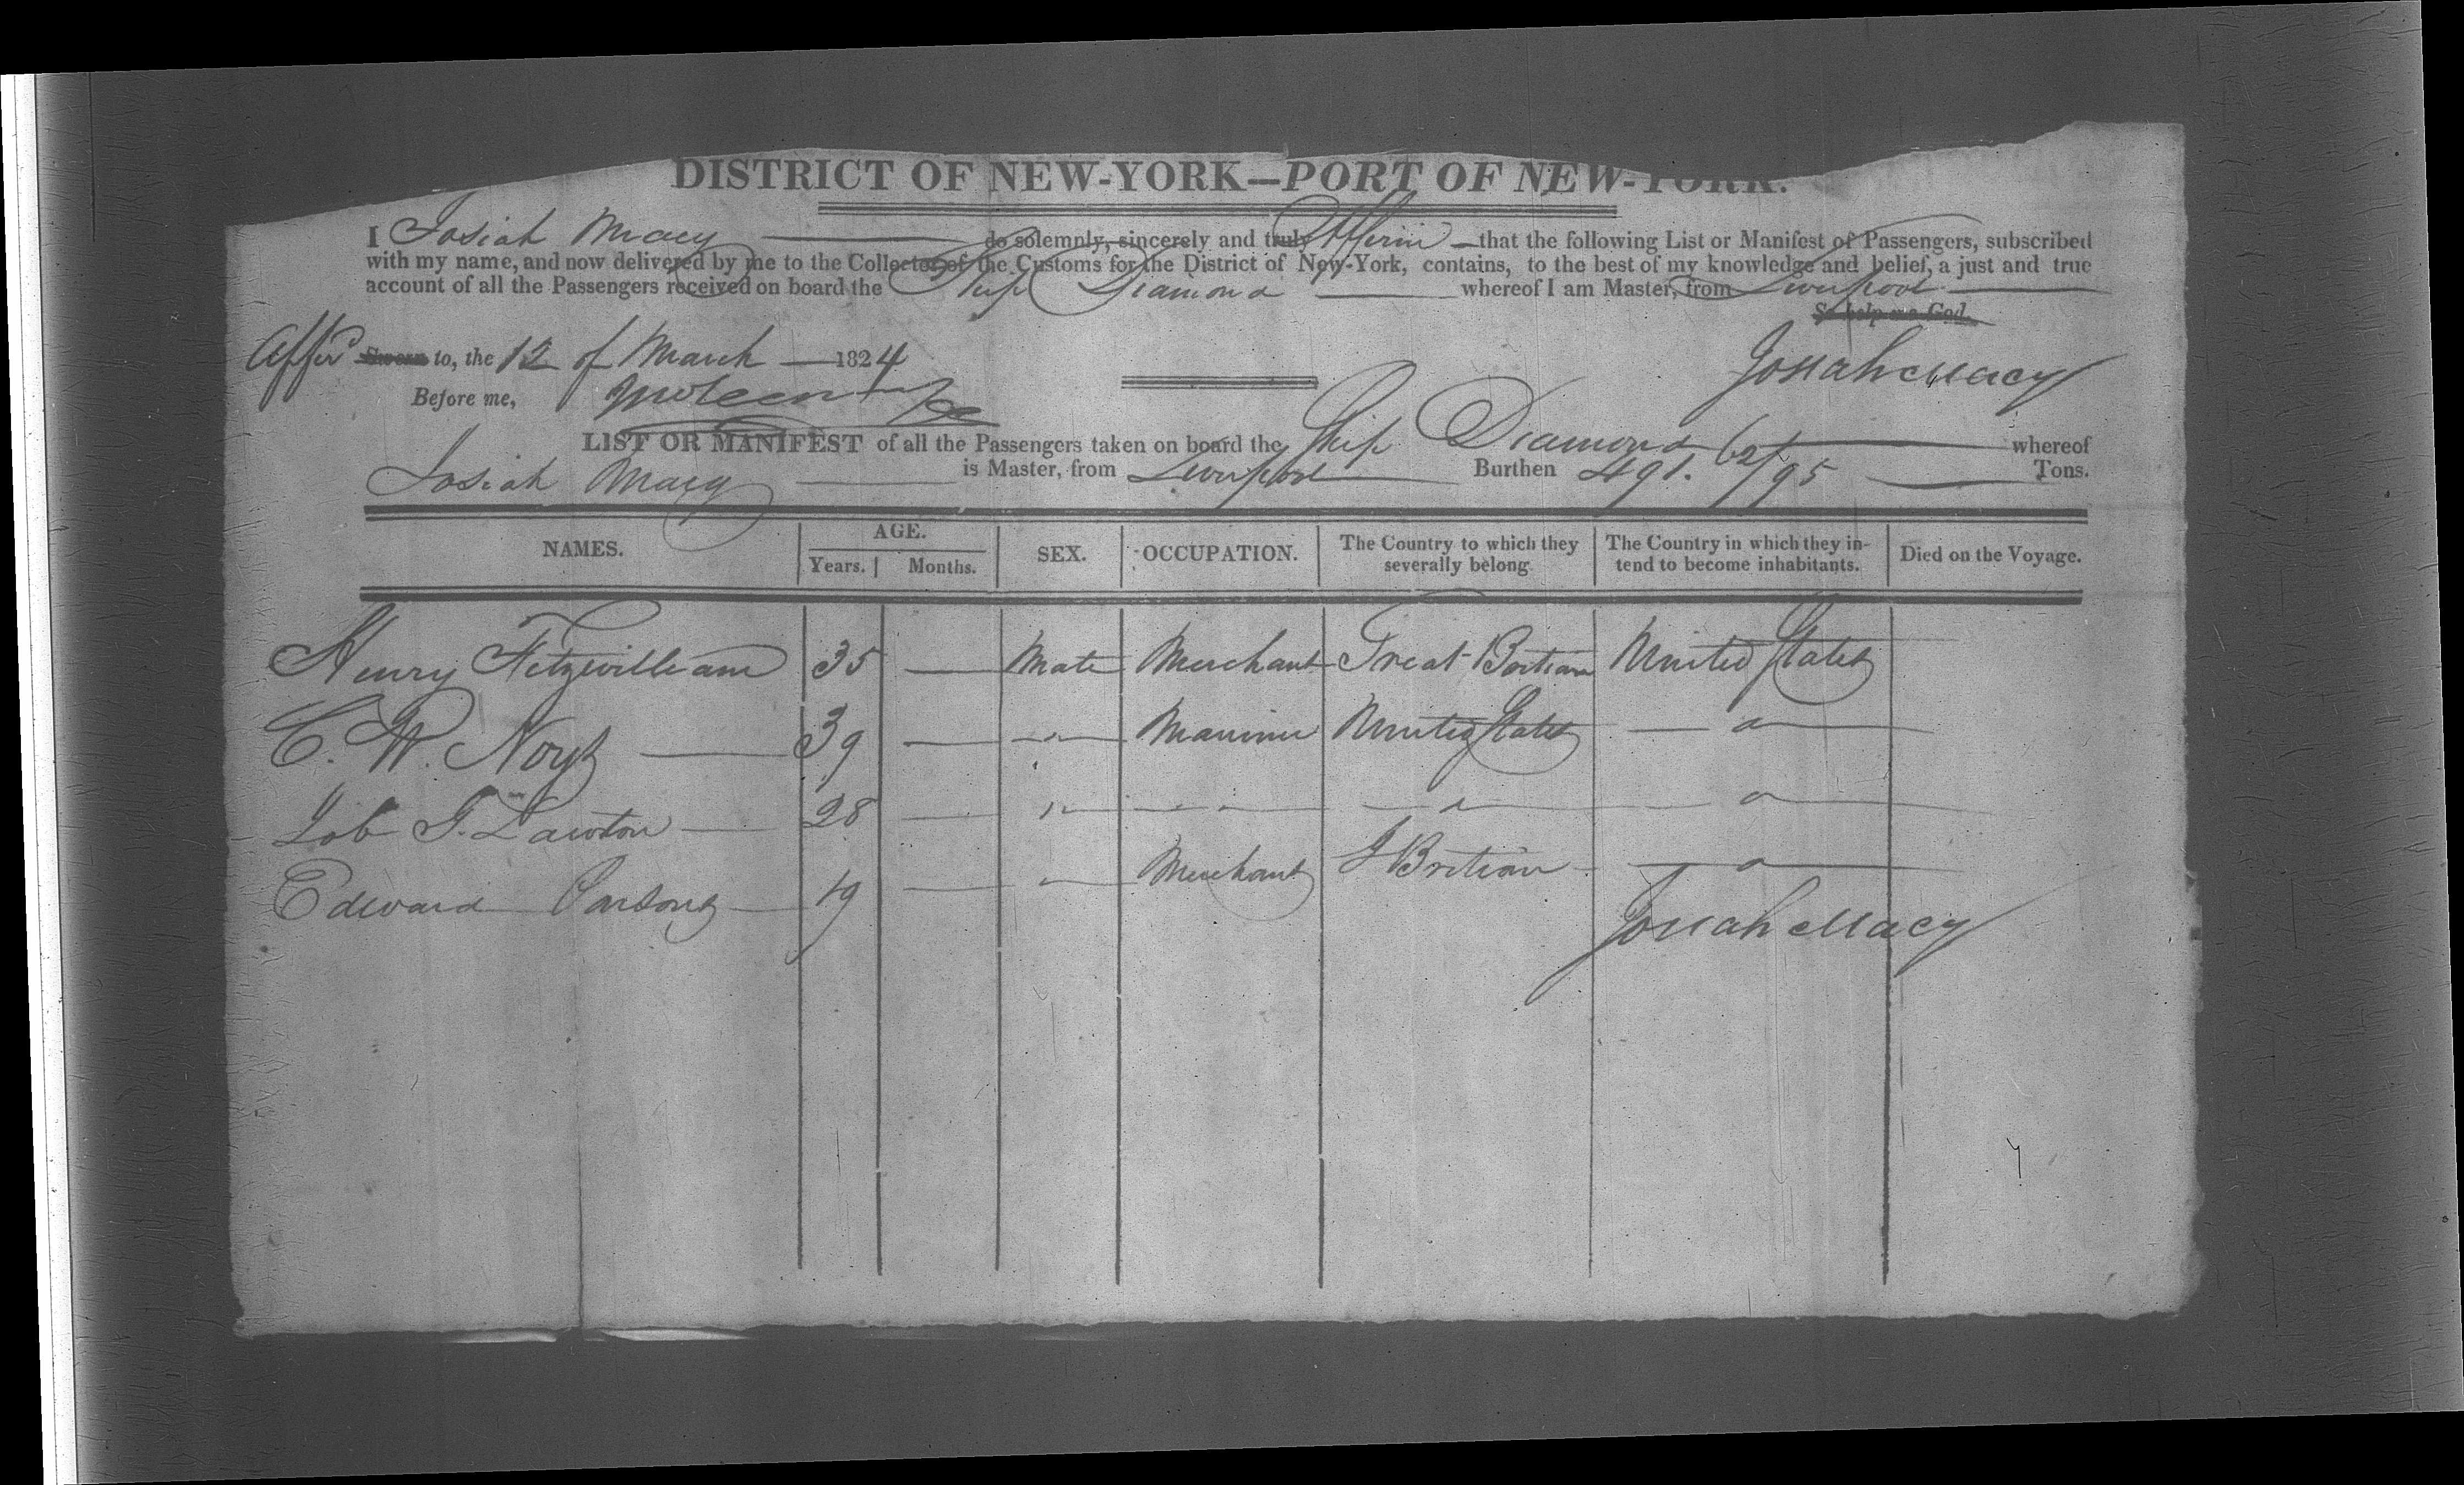 DISTRICT OF NEW-YORK—PORT OF NEW-YORK.
I Josiah Macy do solemnly, sincerely and truly Affirm that the following List or Manifest of Passengers, subscribed
with my name, and now delivered by me to the Collector of the Customs for the District of New-York, contains, to the best of my knowledge and belief, a just and true
account of all the Passengers received on board the Ship Diamond whereof I am Master, from Liverpool
So help me God.
Affd Sworn to, the 12 of March 1824
Josiah Macy
Before me,
LIST OR MANIFEST of all the Passengers taken on board the Ship Diamond whereof
Josiah Macy is Master, from Liverpool Burthen 491. 62/95 Tons.
NAMES. AGE. Years. Months. SEX. OCCUPATION. The Country to which they severally belong The Country in which they intend to become inhabitants. Died on the Voyage.
Henry Fitzwilleam 35 — Male Merchant Great Britian United States
C. W. Noys — 39 — " Mariner United States — " —
Job G. Lawton — 28 — " — " — — " — — " —
Edward Parsons — 19 — " Merchant G Britian — " —
Josiah Macy